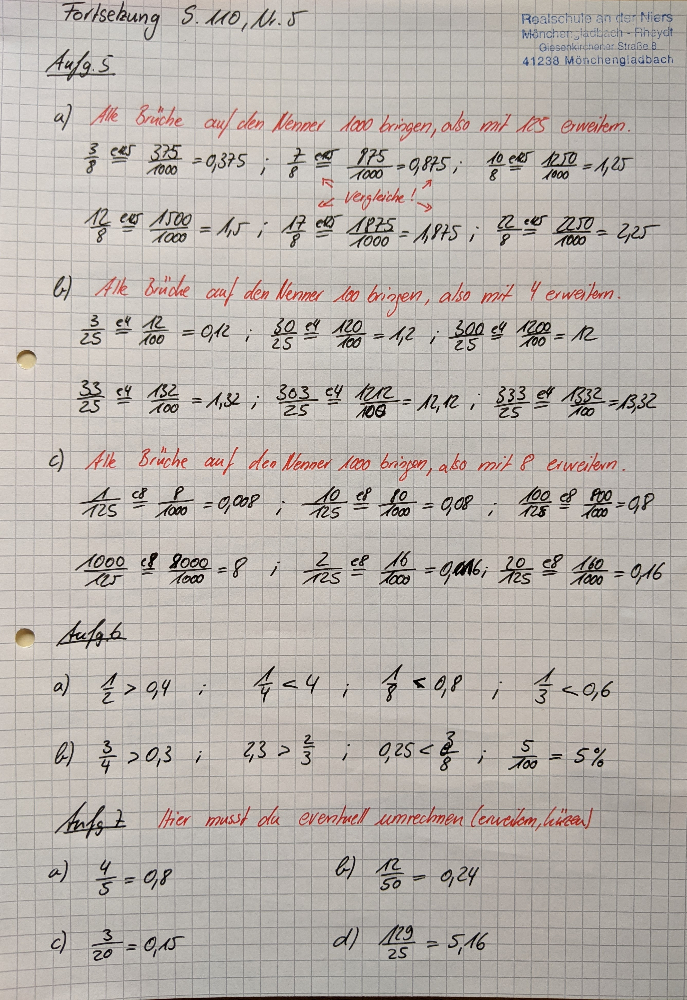 Fortsetzung S. 110, Nr. 5
Realschule an der Niers
Mönchengladbach - Rheydt
Giesenkirchener Straße 8
41238 Mönchengladbach
Aufg. 5
a) Alle Brüche auf den Nenner 1000 bringen, also mit 125 erweitern.
3/8 =e125= 375/1000 = 0,375 ; 7/8 =e125= 875/1000 = 0,875 ; 10/8 =e125= 1250/1000 = 1,25
Vergleiche!
12/8 =e125= 1500/1000 = 1,5 ; 17/8 =e125= 1875/1000 = 1,875 ; 22/8 =e125= 2250/1000 = 2,25
b) Alle Brüche auf den Nenner 100 bringen, also mit 4 erweitern.
3/25 =e4= 12/100 = 0,12 ; 30/25 =e4= 120/100 = 1,2 ; 300/25 =e4= 1200/100 = 12
33/25 =e4= 132/100 = 1,32 ; 303/25 =e4= 1212/100 = 12,12 ; 333/25 =e4= 1332/100 = 13,32
c) Alle Brüche auf den Nenner 1000 bringen, also mit 8 erweitern.
1/125 =e8= 8/1000 = 0,008 ; 10/125 =e8= 80/1000 = 0,08 ; 100/125 =e8= 800/1000 = 0,8
1000/125 =e8= 8000/1000 = 8 ; 2/125 =e8= 16/1000 = 0,016 ; 20/125 =e8= 160/1000 = 0,16
Aufg. 6
a) 1/2 > 0,4 ; 1/4 < 4 ; 1/8 < 0,8 ; 1/3 < 0,6
b) 3/4 > 0,3 ; 2,3 > 2/3 ; 0,25 < 3/8 ; 5/100 = 5%
Aufg. 7 Hier musst du eventuell umrechnen (erweitern, kürzen)
a) 4/5 = 0,8 b) 12/50 = 0,24
c) 3/20 = 0,15 d) 129/25 = 5,16